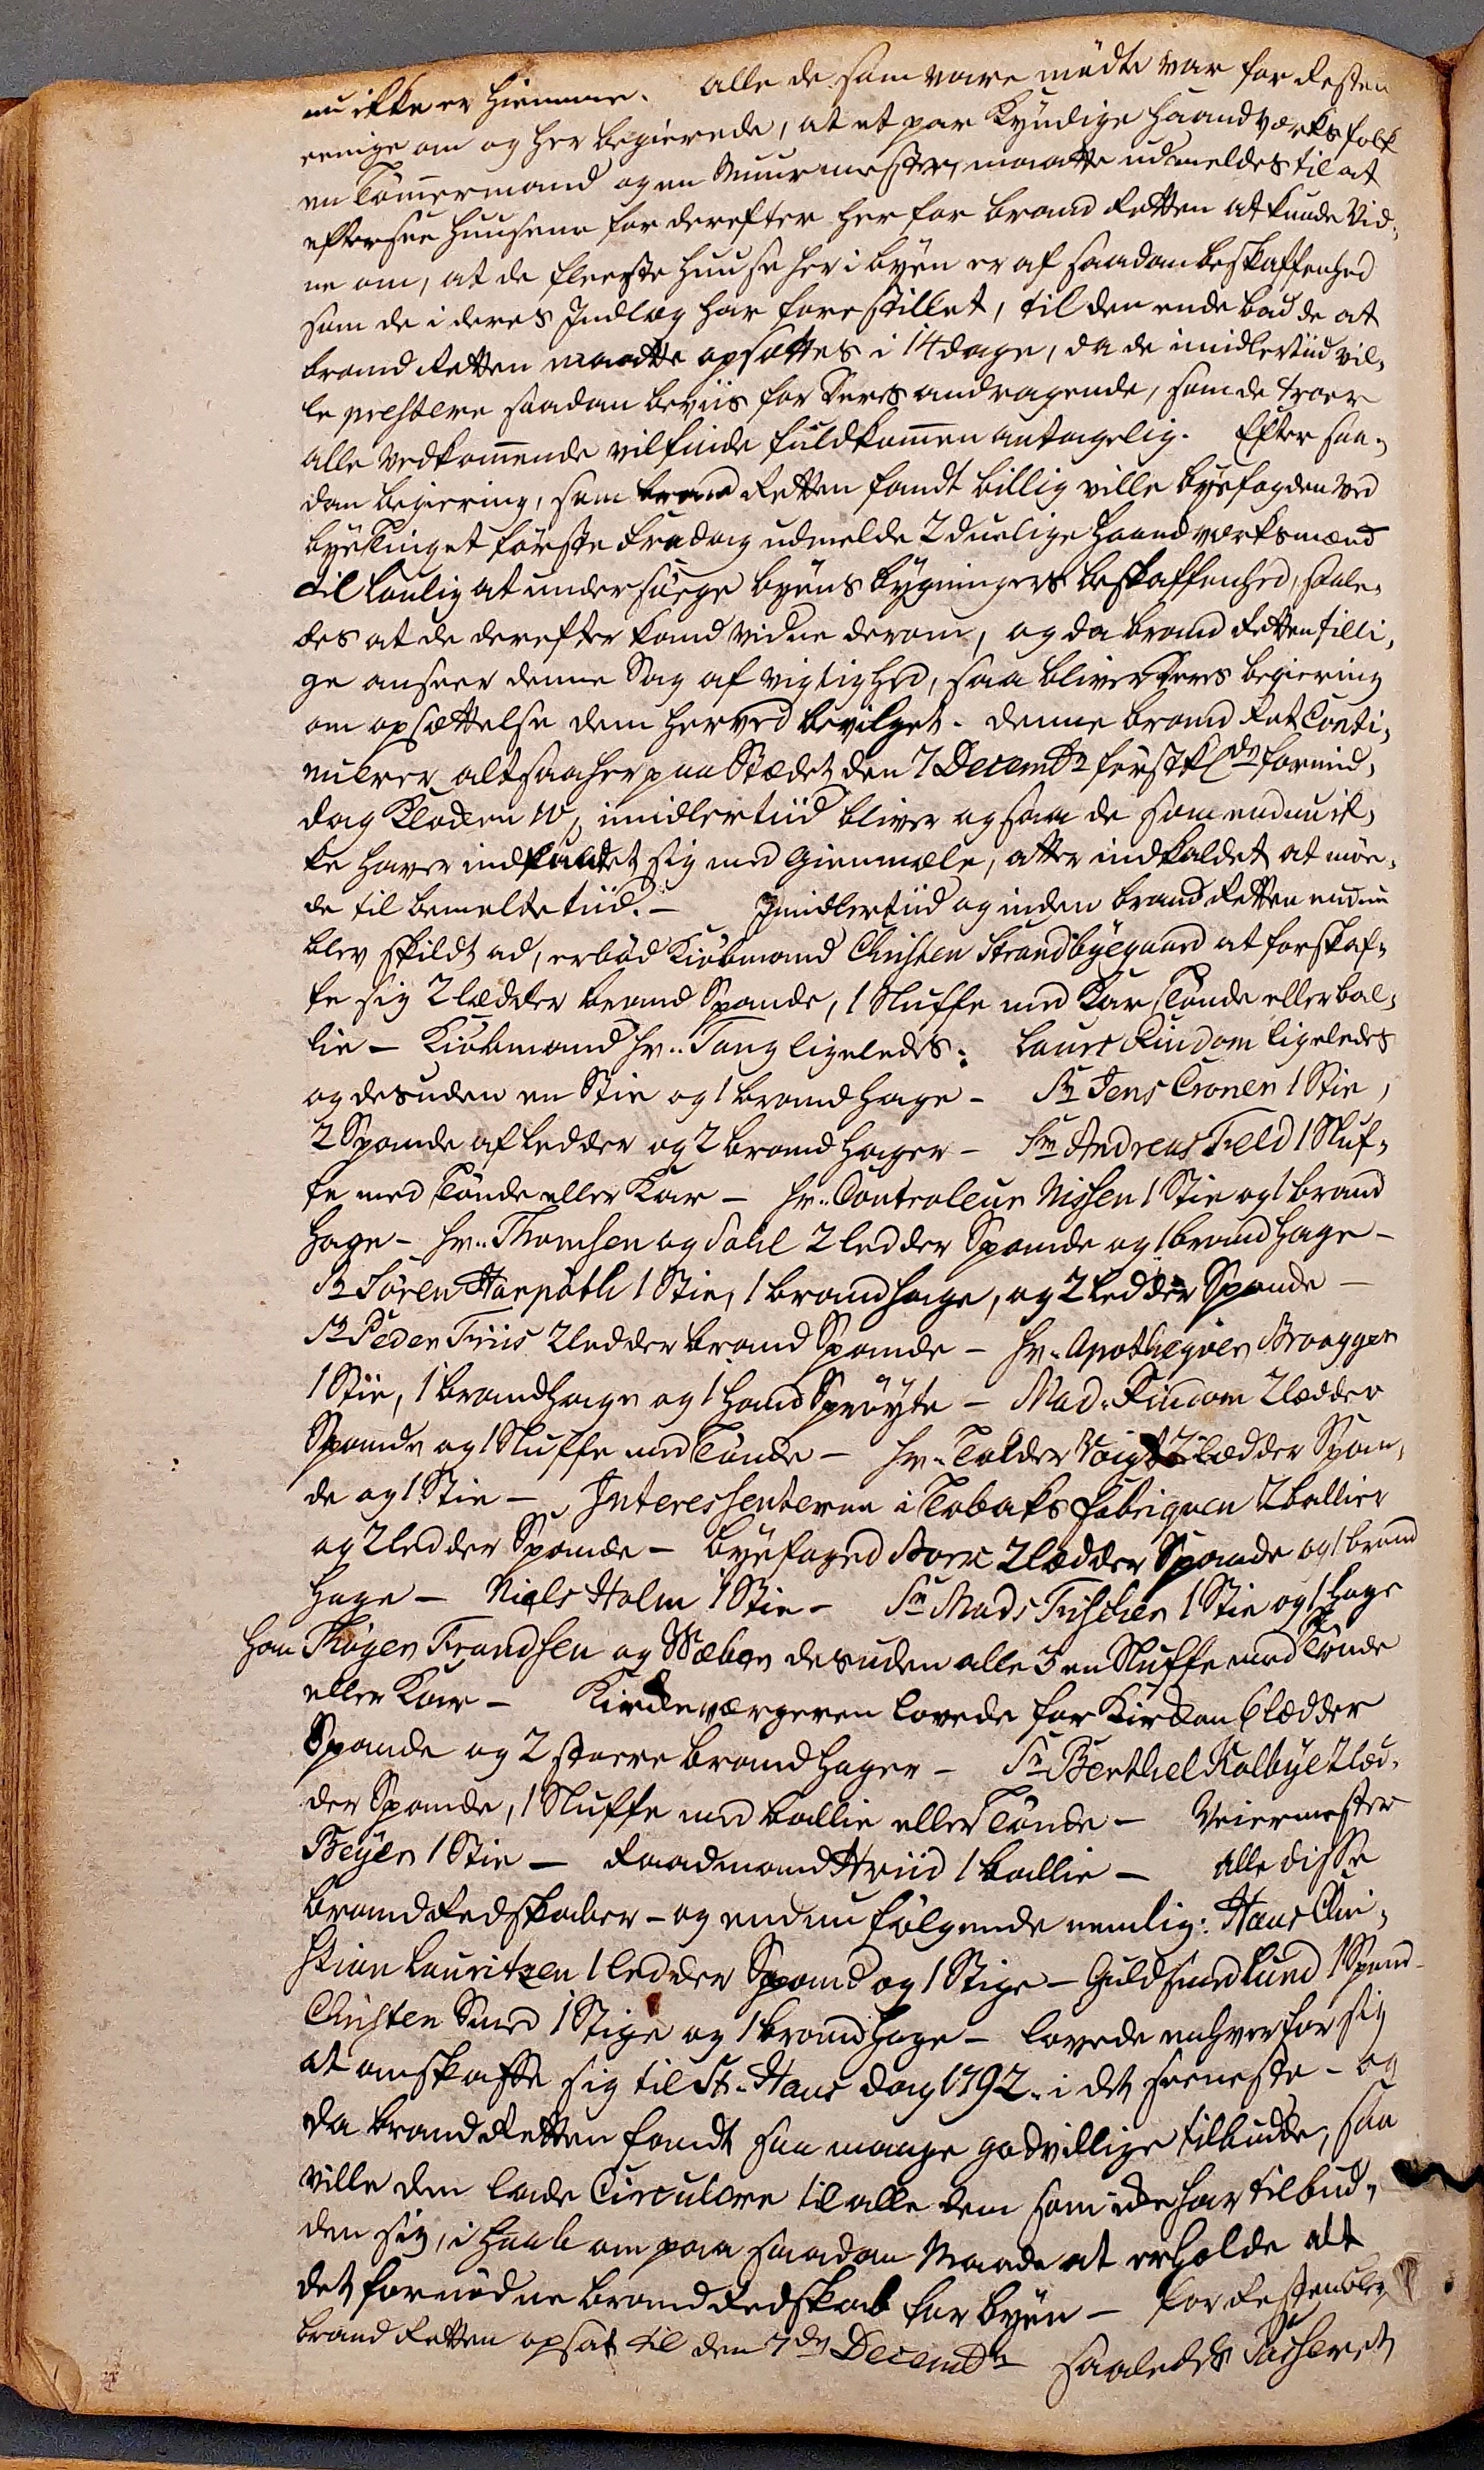 nu ikke er hiemme. Alle de som vare mødte var for Resten
eenige om og her begierede, at et par kyndige Haandværksfolk
en Tømmermand og en Muurmester, maatte udmeldes til at
eftersee Huusene for derefter her for brand Retten at kunde vid-
ne om, at de fleeste Huuse her i byen er af saadan beskaffenhed
som de i deres Indlæg har forestillet, til den ende bad de at
brand Retten maatte opsættes i 14 dage, da de imidlertiid vil-
le præstere saadan beviis for deres andragende, som de troer
alle vedkommende vil finde fuldkommen antagelig. Efter saa-
dan begiering, som brand Retten fandt billig ville byefogden ved
byetinget første Fredag udmelde 2 duelige Haandværksmænd
til lovlig at undersøge byens bygningers beskaffenhed, saale-
des at de derefter kand vidne derom, og da brand Retten tilli-
ge anseer denne Sag af vigtighed, saa bliver deres begiering
om opsættelse dem herved bevilget. Denne brand Ret Conti-
nuerer altsaa her paa Stædet den 7 Decembr førstk. formid-
dag Klocken 10, imidlertiid bliver ogsaa de som endnu ik-
ke haver indfundet sig med Giemmæle, atter indkaldet at møe-
de til bemeldte tiid. - Imidlertiid og inden brand Retten endnu
blev skildt ad, erbød Kiøbmand Christen Strandbyegaard at forskaf-
fe sig 2 lædder brand Spande, 1 Sluffe med Kar Tønde eller bal-
lie - Kiøbmand Hr. Tang ligeledes. Laurs Rindom ligeledes
og desuden en Stie og 1 brand hage - Sr Jens Croner 1 Stie,
2 Spande af ledder og 2 brand hager - Sr Andreas Feld 1 Sluf-
fe med Tønde eller Kar - Hr. Controleur Nissen 1 Stie og 1 brand
hage - Hr. Thomsen og Dahl 2 ledder Spande og 1 brand hage -
Sr Søren Harpøth 1 Stie, 1 brand hage, og 2 ledder Spande -
Sr Peder Friis 2 ledder brand Spande - Hr. Apotheqver Braagger
1 Stie, 1 brandhage og 1 Hand Sprøyte - Mad. Rindom 2 lædder
Spande og 1 Sluffe med Tønde - Hr. Tolder Voigt 2 lædder Span-
de og 1 Stie - Interessenterne i Tobaks fabriquen 2 ballier
og 2 ledder Spande - byefoged 2 lædder Spande og 1 brand
hage - Niels Holm 1 Stie - Sr Mads Fischer 1 Stie og 1 Hage
han Thøger Frandsen og Wæber desuden alle 3 en Sluffe med Tønde
eller Kar - Kirkeværgeren lovede for Kirken 6 lædder
Spande og 2 støere brand hager - Sr Berthel Kolbye 2 læd-
der Spande, 1 Sluffe med ballie eller Tønde - Veiermester
Beyer 1 Stie - Raadmand Hviid 1 ballie - Alle disse
brand Redskaber - og endnu følgende nemlig: Hans Chri-
stian Lauritzen 1 ledder Spand og 1 Stige - Guldsmed Lund 1 Spand
Christen Smed 1 Stige og 1 brand hage - lovede enhver for sig
at anskaffe sig til St. Hans dag 1792. i det seeneste - og
da brand Retten fandt saa mange godvillige tilbud, saa
ville den lade Circulere til alle dem som ikke har tilbud-
den sig, i Haab om paa saadan Maade at erholde alt
det fornødne brand Redskab for byen - For Resten blev
brand Retten opsat til den 7de Decembr saaledes Passeret